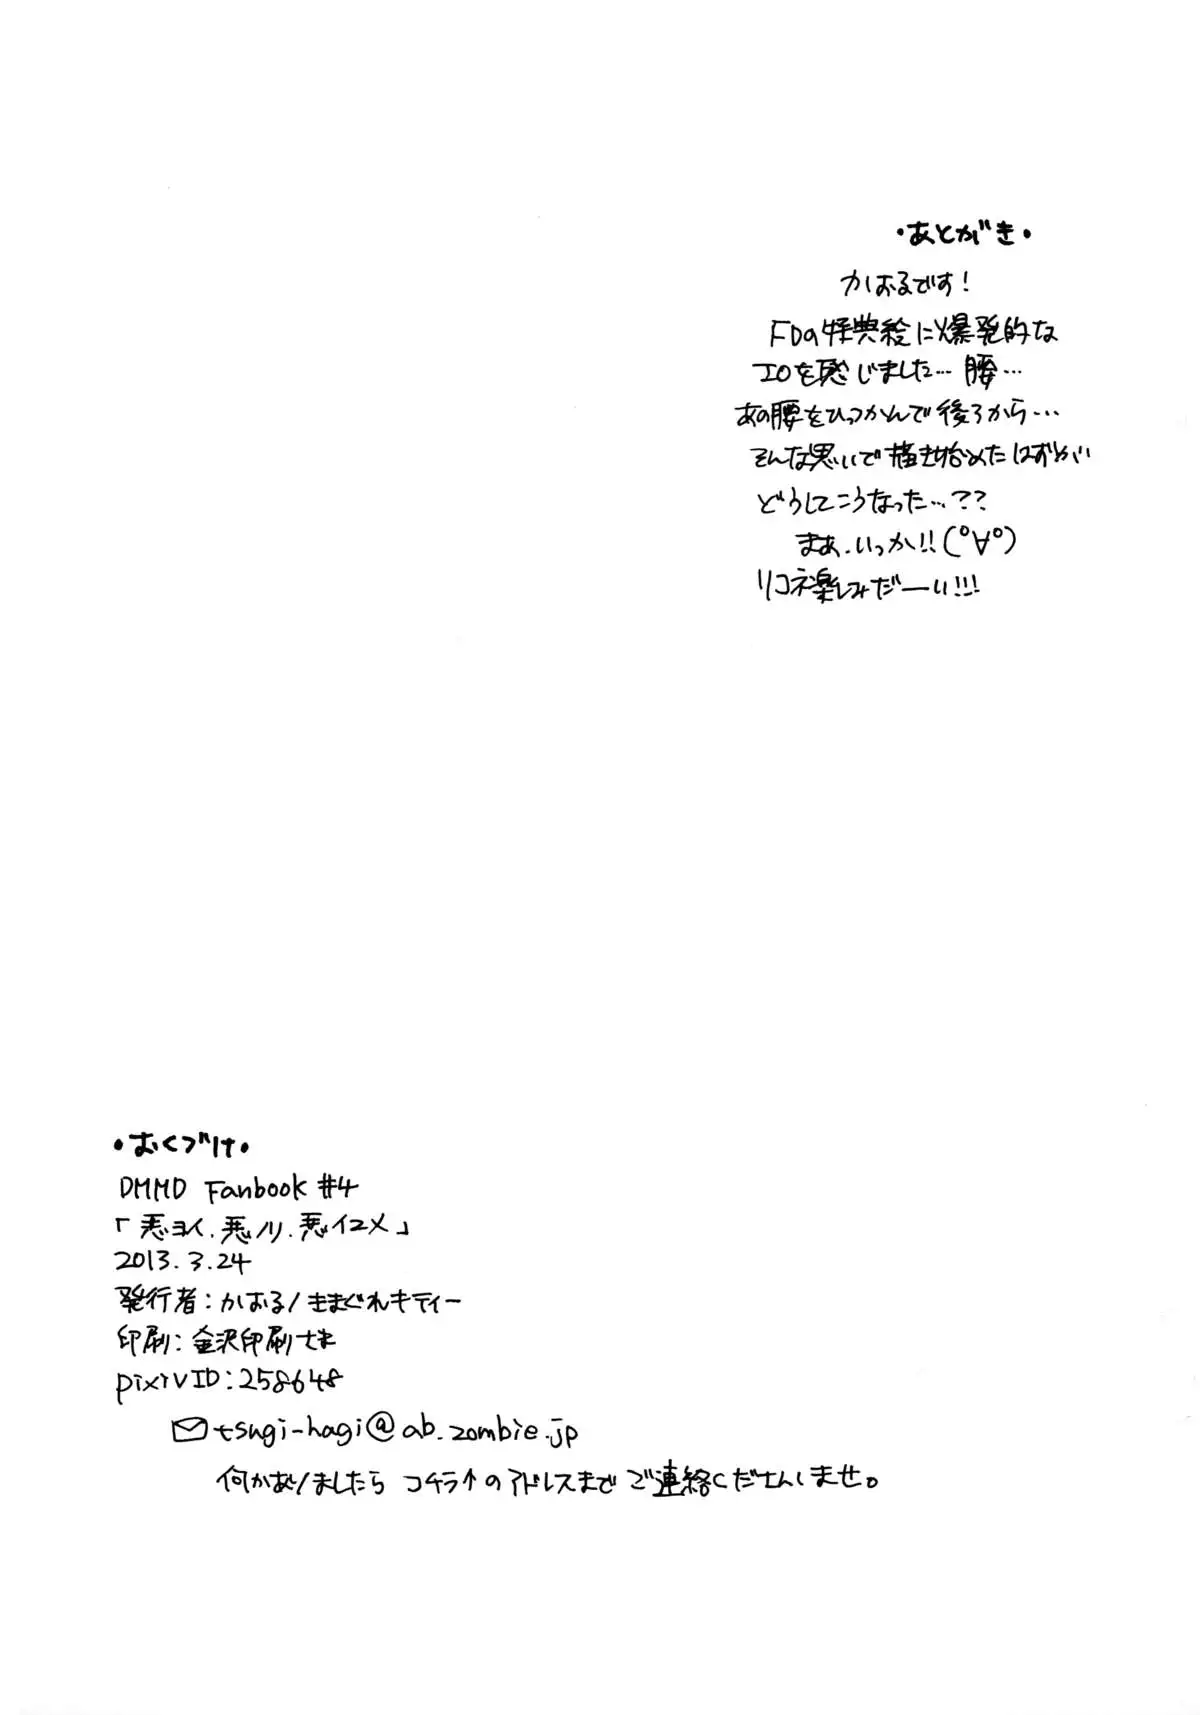 ・あとがき・
かおるです!
FDの特典絵に爆発的な
エロを感じました… 腰…
あの腰をひっつかんで後ろから…
そんな思いで描き始めたはずが
どうしてこうなった…??
まあ、いっか!!(゜∀゜)
リコネ楽しみだーい!!!
・おくづけ・
DMMD Fanbook #4
「悪ヨイ、悪ノリ、悪イユメ」
2013.3.24
発行者:かおる/きまぐれキティー
印刷:金沢印刷さま
pixivID:258648
tsugi-hagi@ab.zombie.jp
何かありましたら コチラ↑のアドレスまで ご連絡くださいませ。